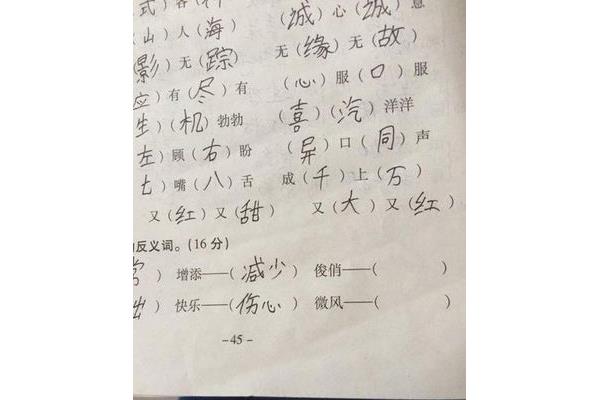 式）各（样 （诚）心（诚）意
（山）人（海） 无（缘）无（故）
影）无（踪）
应）有（尽）有 （心）服（口）服
生）（机）勃勃 （喜）（汽）洋洋
左）顾（右）盼 （异）口（同）声
七）嘴（八）舌 成（千）上（万）
又（红）又（甜） 又（大）又（红）
反义词。（16分）
） 增添——（减少） 俊俏——（ ）
出） 快乐——（伤心） 微风——（ ）
-45-